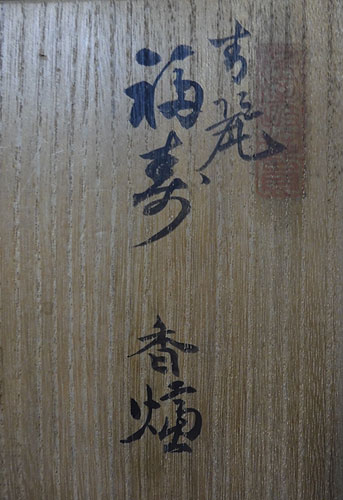 青
福寿 香爐